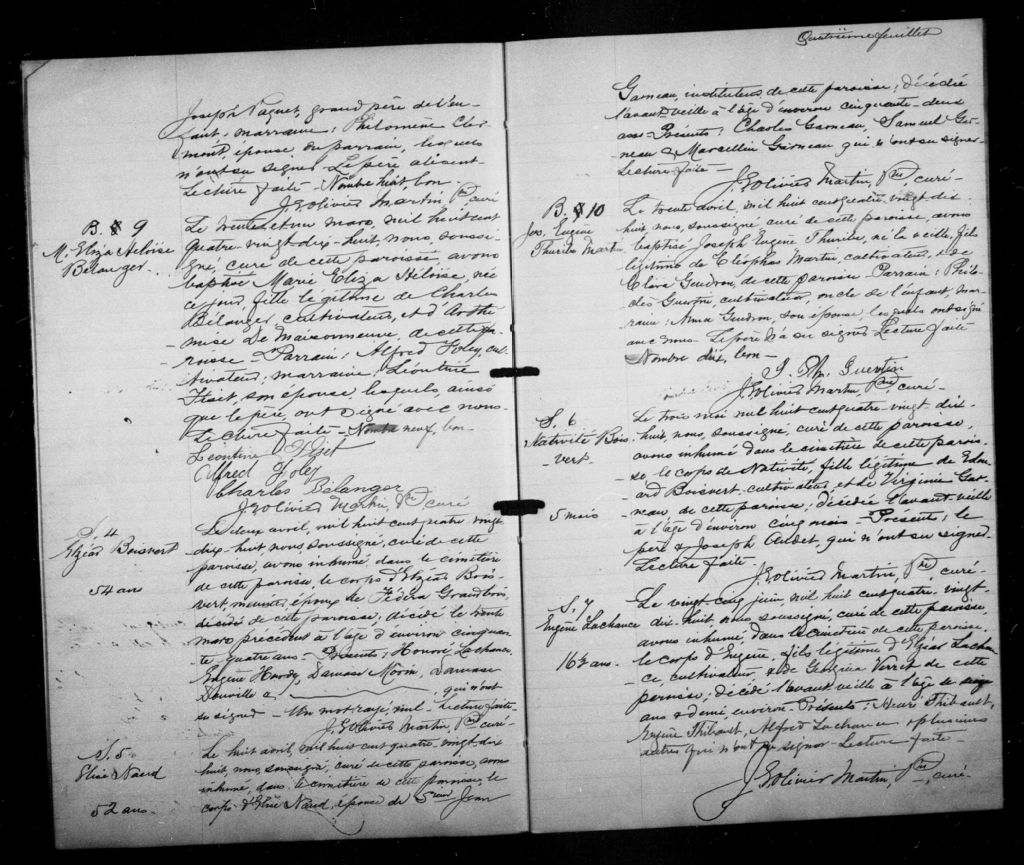 Quatrième feuillet
Joseph Paquet, grand père de l'en-
fant; marraine: Philomène Cler
mont, épouse du parrain, lesquels
n'ont su signer. Le père absent-
Lecture faite - Nombre huit, bon -
J. Eolivier Martin, Ptre, curé
B. 9
M. Eliza Heloïse
Belanger
Le trente et un mars, mil huit cent
quatre vingt dix-huit, nous, soussi-
gné, curé de cette paroisse, avons
baptisé Marie Eliza Héloïse, née
ce jour, fille légitime de Charles
Bélanger cultivateur, et d'Arthé
mise De Maisonneuve, de cette pa-
roisse - Parrain: Alfred Foley, cul
tivateur; marraine: Léontine
Viset, son épouse, lesquels, ainsi
que le père, ont signé avec nous -
Lecture faite - Nombre neuf, bon -
Léontine Viset
Alfred Foley
Charles Bélanger
J. Eolivier Martin, Ptre, curé
S. 4
Elzéar Boisvert
54 ans
Le deux avril, mil huit cent quatre vingt
dix-huit, nous soussigné, curé de cette
paroisse, avons inhumé, dans le cimetière
de cette paroisse le corps d'Elzéar Bois
vert, meunier, époux de Fédéra Grandbois,
décédé de cette paroisse, décédé le trente
mars précédent à l'âge d'environ cinquan
te quatre ans - Présents: Honoré Lachance,
Eugène Hardy, Damase Morin, Damase
Douville & qui n'ont
su signer - Un mot rayé, nul - Lecture faite -
J. Eolivier Martin, Ptre, curé
S. 5
Elise Naud
52 ans -
Le huit avril, mil huit cent quatre vingt dix
huit, nous, soussigné, curé de cette paroisse, avons
inhumé, dans le cimetière de cette paroisse, le
corps d'Elise Naud, épouse de Sieur Jean
Garneau, instituteur de cette paroisse; décédée
l'avant-veille à l'âge d'environ cinquante-deux
ans - Présents: Charles Garneau, Samuel Gar-
neau & Marcellin Garneau qui n'ont su signer -
Lecture faite -
J. Eolivier Martin, Ptre, curé -
B. 10
Jos. Eugène
Thuribe Martin
Le trente avril, mil huit cent quatre vingt dix
huit, nous, soussigné, curé de cette paroisse, avons
baptisé Joseph Eugène Thuribe, né la veille, fils
légitime de Cléophas Martin, cultivateur, & de
Clara Gendron, de cette paroisse Parrain: Philé-
as Guertin, cultivateur, oncle de l'enfant, mar-
raine: Anna Gendron, son épouse, lesquels ont signé
avec nous - Le père n'a su signer Lecture faite -
Nombre dix, bon -
Guertin
J. Eolivier Martin, Ptre, curé -
S. 6
Nativité Bois
vert
5 mois
Le trois mai mil huit cent quatre-vingt-dix-
huit, nous, soussigné, curé de cette paroisse,
avons inhumé dans le cimetière de cette parois-
se le corps de Nativité, fille légitime de Edou
ard Boisvert cultivateur, et de Virginie Gar-
neau de cette paroisse; décédée l'avant-veille
à l'âge d'environ cinq mois - Présents: le
père & Joseph Audet, qui n'ont su signer -
Lecture faite.
J. Eolivier Martin, Ptre, curé -
S. 7
Eugène Lachance
16½ ans -
Le vingt-cinq juin, mil huit cent quatre-vingt-
dix-huit, nous soussigné, curé de cette paroisse,
avons inhumé dans le cimetière de cette paroisse,
le corps d'Eugène, fils légitime d'Elzéar Lachan
ce, cultivateur, & de Georgina Verret de cette
paroisse; décédé l'avant-veille à l'âge de seize
ans & demi, environ - Présents: Henri Thibault,
Eugène Thibault, Alfred Lachance & plusieurs
autres qui n'ont su signer - Lecture faite -
J. Eolivier Martin, Ptre, curé -